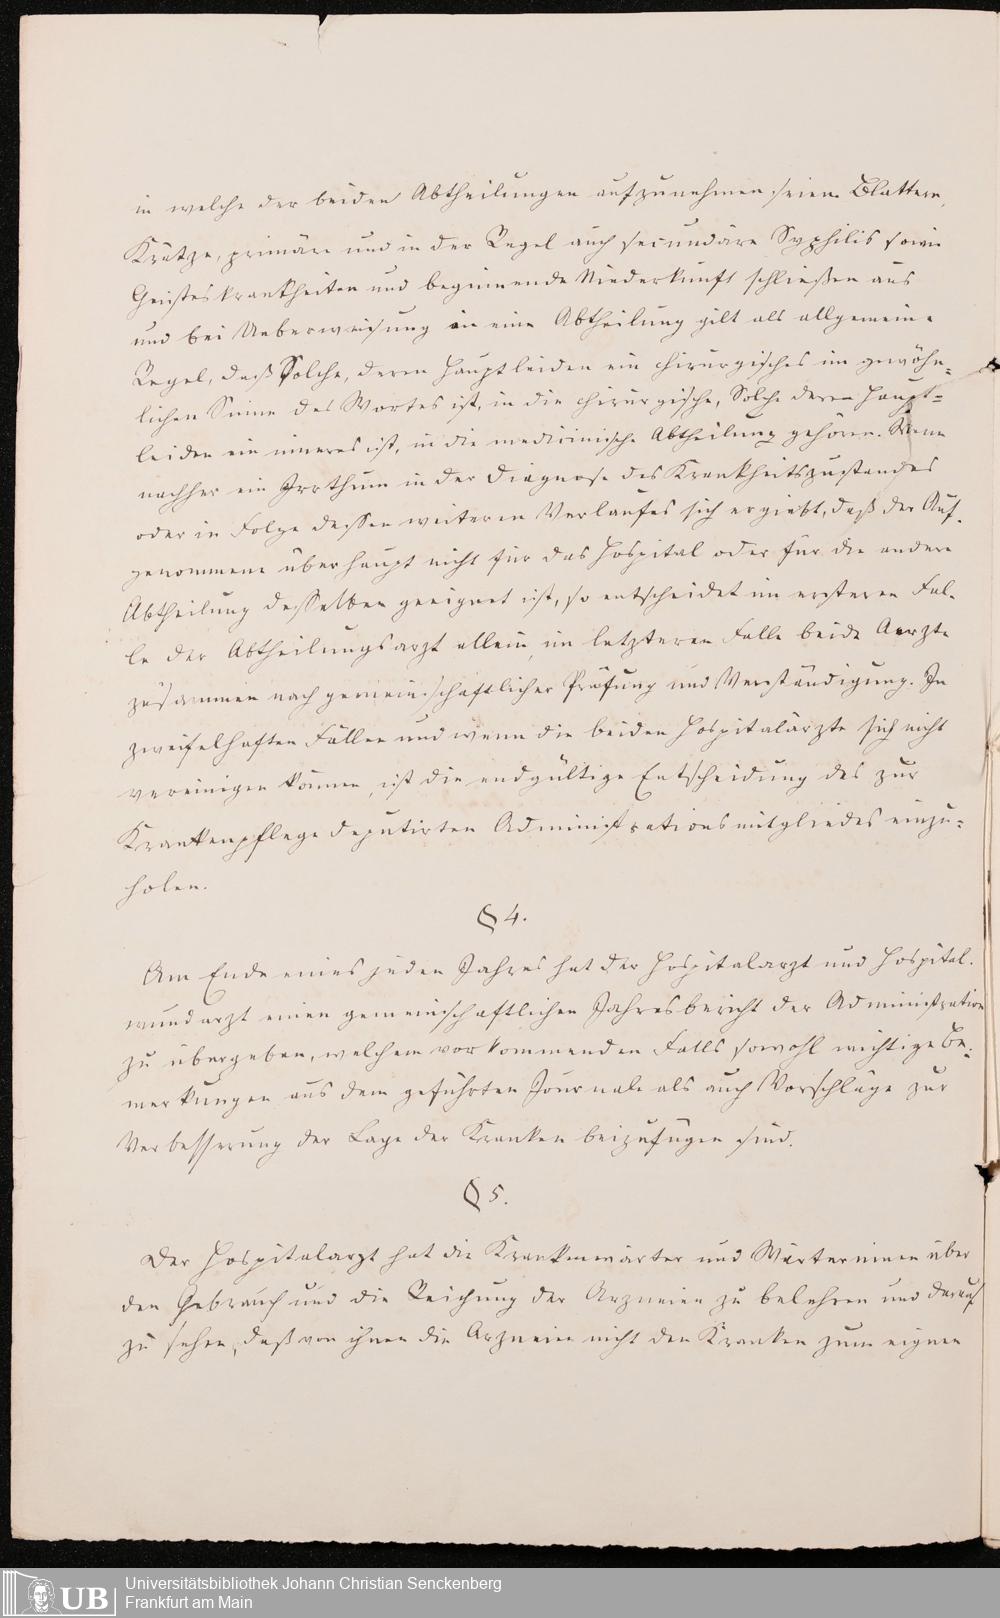 in welche der beiden Abtheilungen aufzunehmen seien. Blattern,
Krätze, primäre und in der Regel auch secundäre Syphilis sowie
Geisteskrankheiten und beginnende Niederkunft schließen aus
und bei Ueberweisung an eine Abtheilung gilt als allgemeine
Regel, daß Solche, deren Hauptleiden ein chirurgisches im gewöhn-
lichen Sinne des Wortes ist, in die chirurgische, Solche deren Haupt-
leiden ein inneres ist, in die medicinische Abtheilung gehören. Wenn
nachher ein Irrthum in der Diagnose des Krankheitszustandes
oder in Folge dessen weiteren Verlaufes sich ergiebt, daß der Auf-
genommene überhaupt nicht für das Hospital oder für die andere
Abtheilung desselben geeignet ist, so entscheidet im ersteren Fal-
le der Abtheilungsarzt allein, im letzteren Falle beide Aerzte
zusammen nach gemeinschaftlicher Prüfung und Verständigung. In
zweifelhaften Fällen und wenn die beiden Hospitalärzte sich nicht
vereinigen können, ist die endgültige Entscheidung des zur
Krankenpflege deputirten Administrationsmitgliedes einzu-
holen.
§ 4.
Am Ende eines jeden Jahres hat der Hospitalarzt und Hospital-
wundarzt einen gemeinschaftlichen Jahresbericht der Administration
zu übergeben, welchem vorkommenden Falls sowohl wichtige Be-
merkungen aus dem geführten Journale als auch Vorschläge zur
Verbesserung der Lage der Kranken beizufügen sind.
§ 5.
Der Hospitalarzt hat die Krankenwärter und Wärterinnen über
den Gebrauch und die Reichung der Arzneien zu belehren und darauf
zu sehen, daß von ihnen die Arzneien nicht den Kranken zum eignen
UB
Universitätsbibliothek Johann Christian Senckenberg
Frankfurt am Main